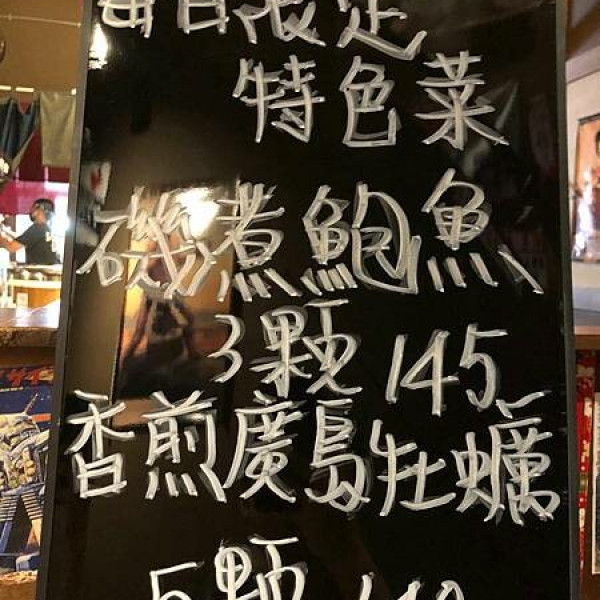 每日限定
特色菜
磯煮鮑魚
3顆 145
香煎廣島牡蠣
5顆